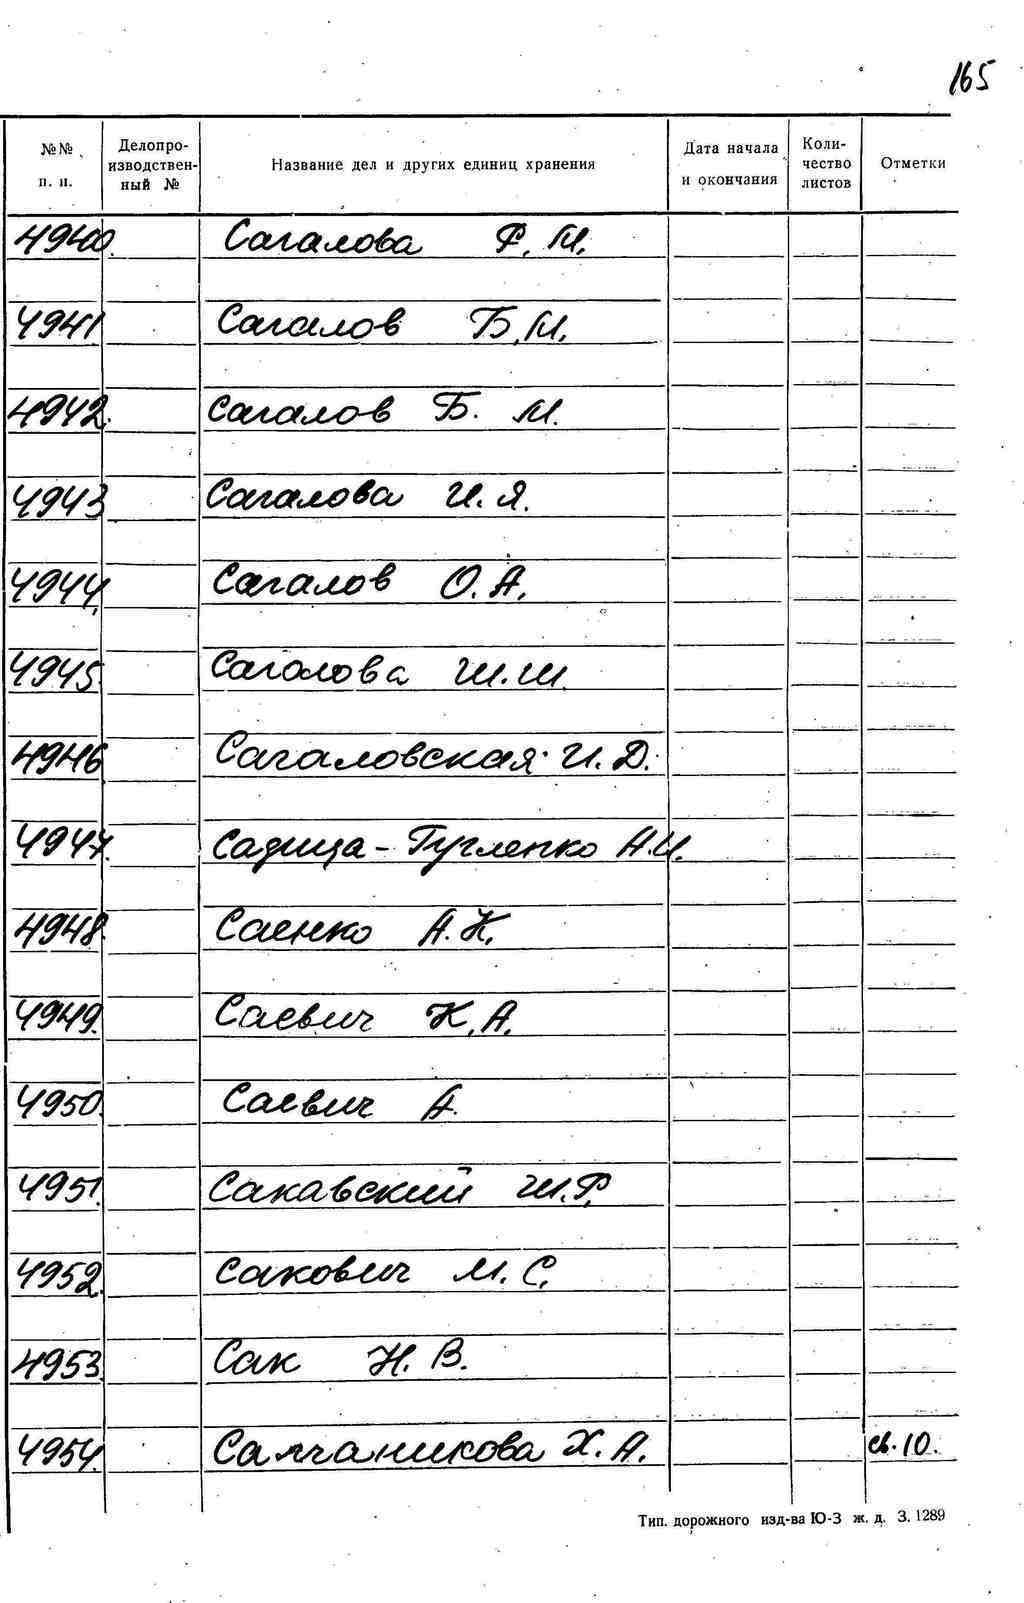 165
№№ п. п. Делопроизводственный № Название дел и других единиц хранения Дата начала и окончания Количество листов Отметки
4940. Сагалова Р. М.
4941 Сагалов Б. М.
4942. Сагалов Б. М.
4943 Сагалова И. Я.
4944. Сагалов О. А.
4945. Сагалова Ш. Ш.
4946 Сагаловская И. Д.
4947. Садица-Гугленко А. И.
4948. Саенко А. К.
4949. Саевич К. А.
4950. Саевич А.
4951. Сакавский Ш. Р.
4952. Сакович М. С.
4953. Сак Н. В.
4954. Салчаникова Х. А. св. 10.
Тип. дорожного изд-ва Ю-З ж. д. З. 1289